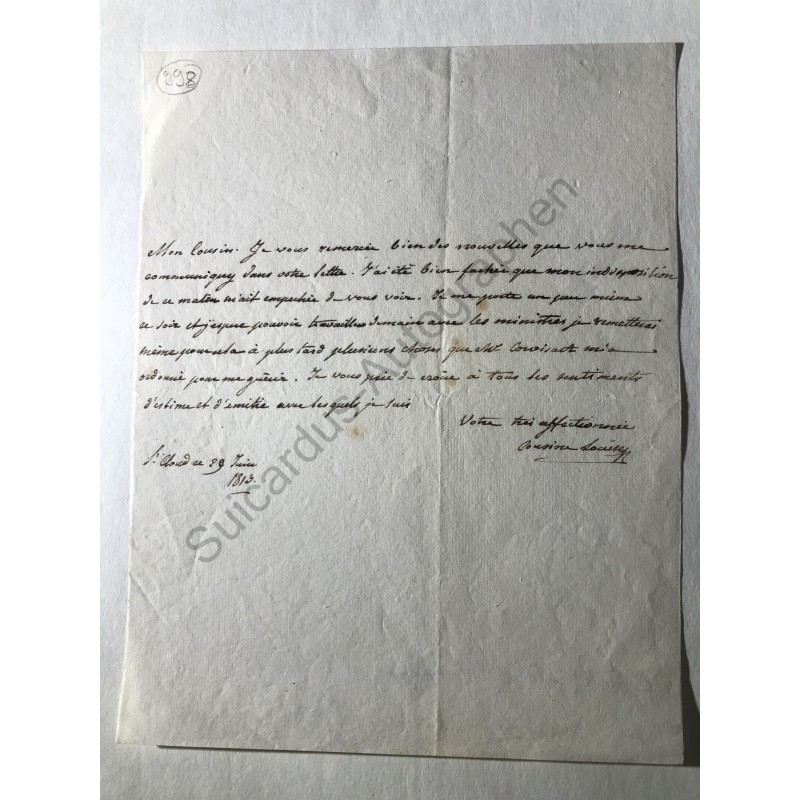 898
Mon Cousin. Je vous remercie bien des nouvelles que vous me
communiquez dans votre lettre. J'ai été bien fachée que mon indisposition
de ce matin m'ait empechée de vous voir. Je me porte un peu mieux
ce soir et j'espere pouvoir travailler demain avec les ministres je remetterai
même pour cela à plus tard plusieurs choses que Mr Corvisart m'a
ordonné pour me guérir. Je vous prie de croire à tous les sentiments
d'estime et d'amitié avec lesquels je suis
Votre très affectionnée
Cousine Louise
St Cloud ce 29 Juin
1813.
Suicardus-Autographen